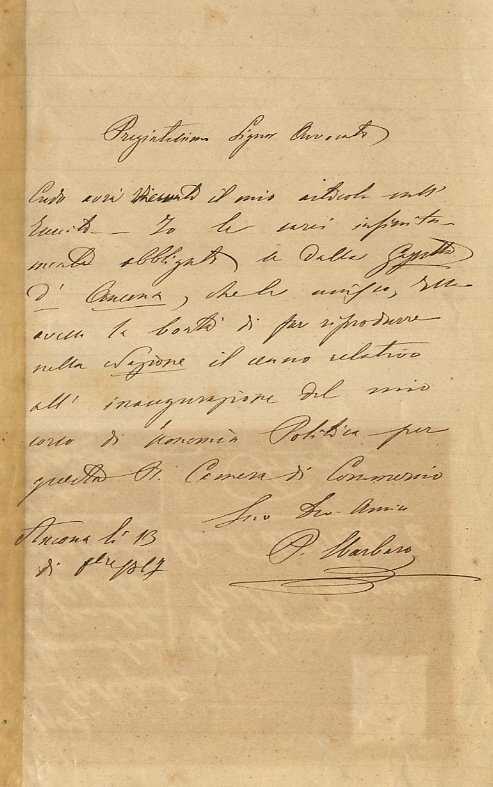 Pregiatissimo Signor Avvocato
Credo avrà ricevuto il mio articolo sull'
Io le sarei infinita-
mente obbligato se dalla Gazzetta
d' Ancona, che le unisco, Ella
avesse la bontà di far riprodurre
nella Nazione il cenno relativo
all' inaugurazione del mio
corso di Economia Politica per
questa R. Camera di Commercio
Suo Dev. Amico
Ancona li 13
P. Sbarbaro
di